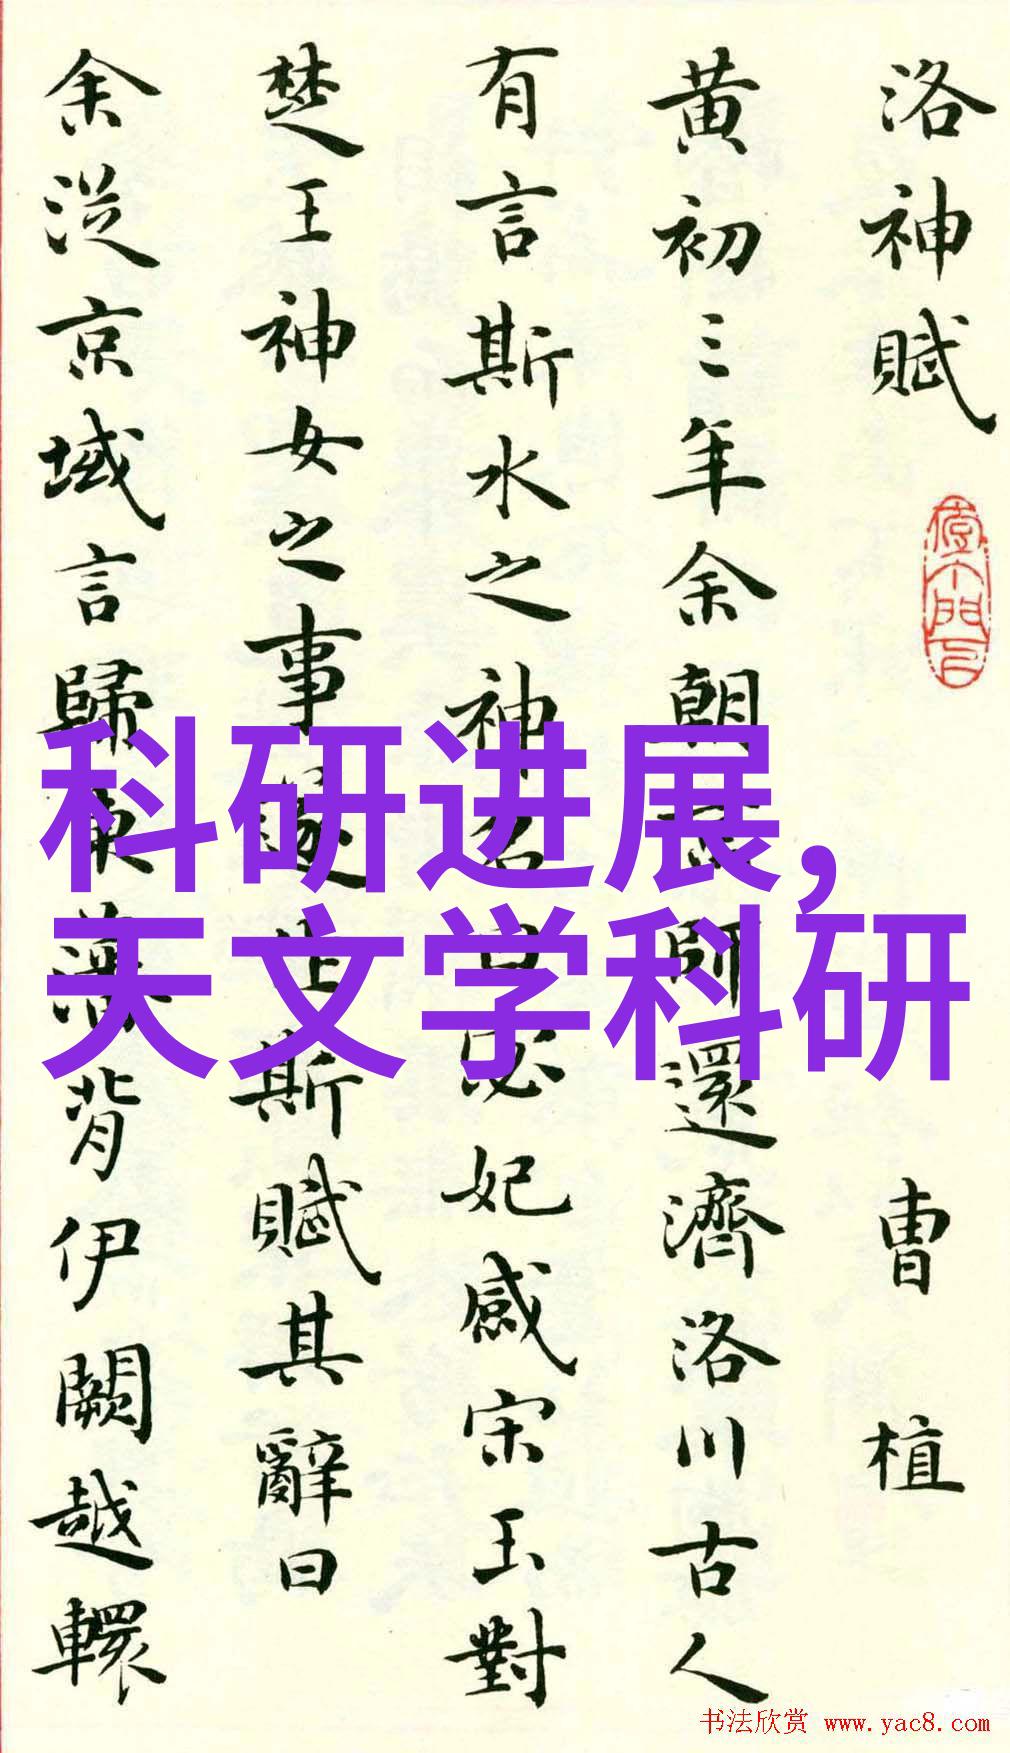 洛神賦 曹植
黄初三年余朝京師還濟洛川古人
有言斯水之神名曰宓妃感宋玉對
楚王神女之事遂作斯賦其辭曰
余從京域言歸東藩背伊闕越轘
科研进展,
天文学科研
书法欣赏 www.yac8.com